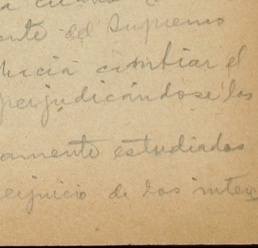 del Supremo
cambiar el
perjudicándose los
amente estudiados
erjuicio de los inter